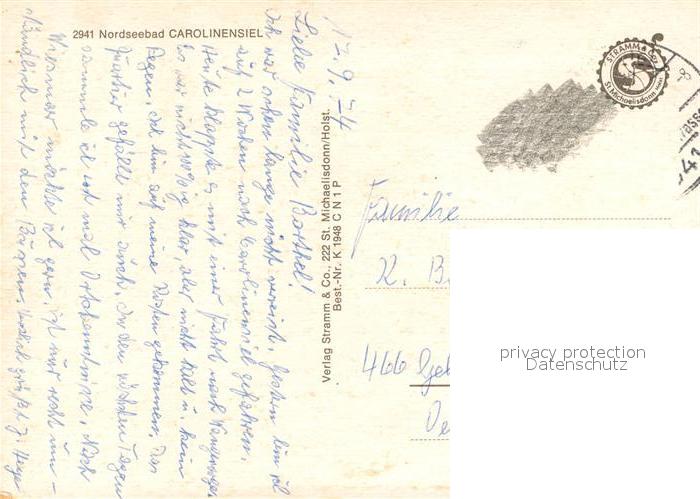 2941 Nordseebad CAROLINENSIEL
17.9.74
Liebe Familie Barthel!
Ich war schon lange nicht verreist, gestern bin ich
auf 2 Wochen nach Carolinensiel gefahren.
Heute klappte es mit einer Fahrt nach Wangerooge
Es war nicht völlig klar, aber nicht kalt u. kein
Regen, ich bin auf meine Kosten gekommen. Das
Quartier gefällt mir auch. In den nächsten Tagen
sammle ich erst mal Ortskenntnisse. Nach
möchte ich gern, ist nur recht um-
ständlich mit den
Verlag Stramm & Co., 222 St. Michaelisdonn/Holst.
Best.-Nr. K 1948 C N 1 P
STRAMM & Co.
St. Michaelisdonn
Familie
K. B
466 Gel
privacy protection
Datenschutz